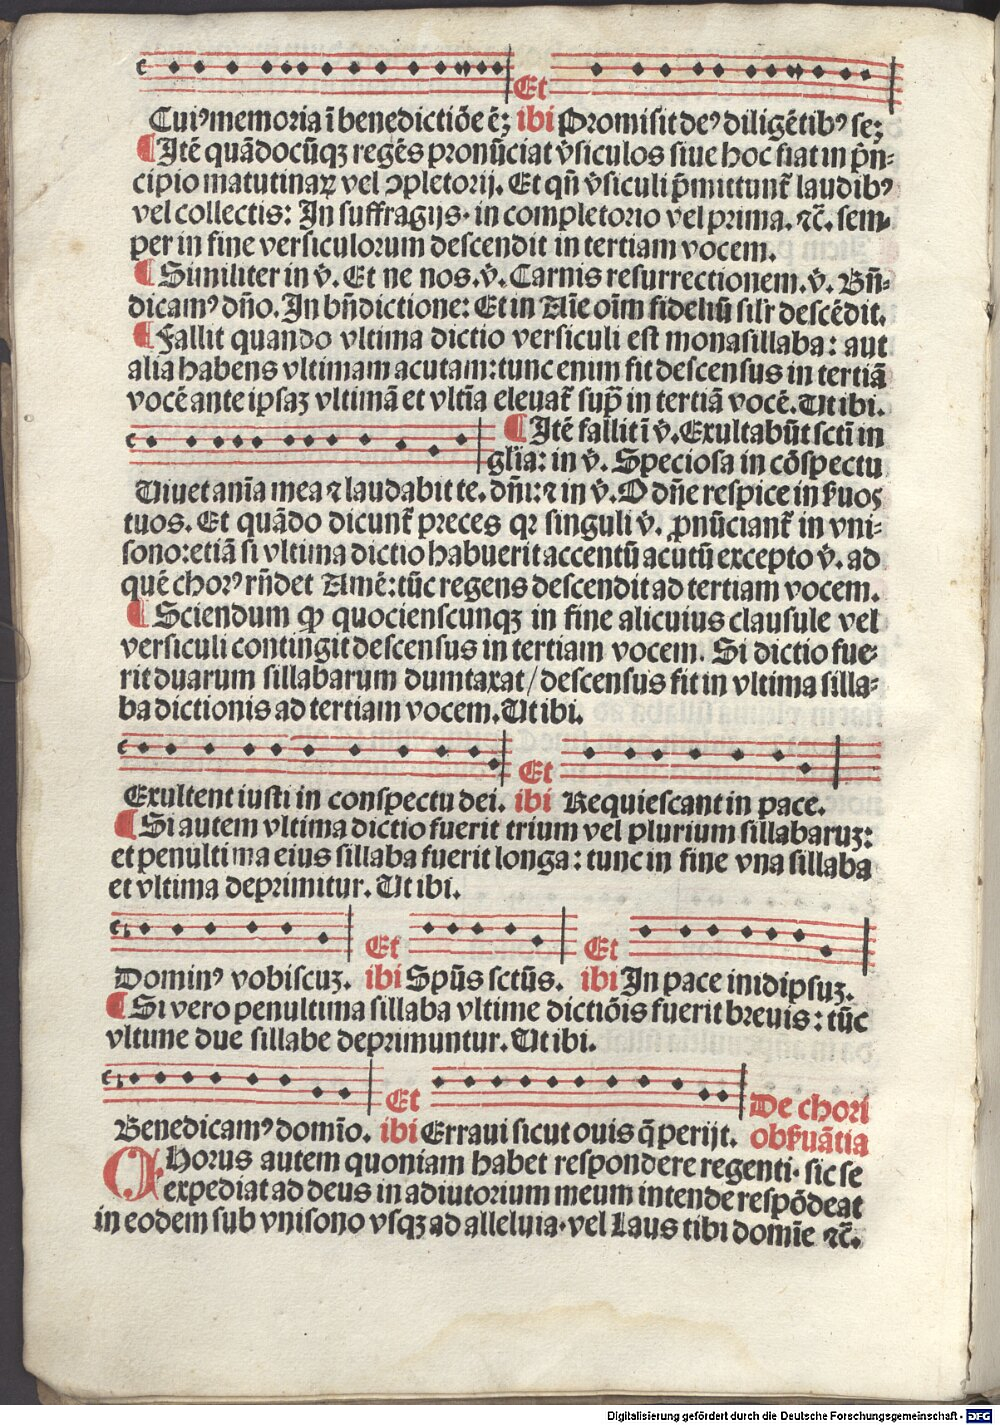 Et
Cuiꝰ memoria ī benedictiōe ē; ibi Promisit deꝰ diligētibꝰ se;
¶ Itē quādocūqꝫ regēs pronūciat v̄siculos siue hoc fiat in p̄n⸗
cipio matutinaꝝ vel ↄpletorij. Et qn̄ v̄siculi p̄mittunt̄ laudibꝰ
vel collectis: In suffragijs· in completorio vel prima. ⁊c̄. sem⸗
per in fine versiculorum descendit in tertiam vocem.
¶ Similiter in v̄. Et ne nos. v̄. Carnis resurrectionem. v̄. Bn̄⸗
dicamꝰ dn̄o. In bn̄dictione: Et in Aīe oīm fideliū silr̄ descēdit.
¶ Fallit quando vltima dictio versiculi est monasillaba: aut
alia habens vltimam acutam: tunc enim fit descensus in tertiā
vocē ante ipsaꝫ vltimā et vltīa eleuat̄ sup̄ in tertiā vocē. Ut ibi.
¶ Itē fallit ī v̄. Exultabūt sctī in
glīa: in v̄. Speciosa in cōspectu
Viuet anīa mea ⁊ laudabit te. dn̄i: ⁊ in v̄. O dn̄e respice in ẜuos
tuos. Et quādo dicunt̄ preces qꝛ singuli v̄. ꝓnūciant̄ in vni⸗
sono: etiā si vltima dictio habuerit accentū acutū excepto v̄. ad
quē chorꝰ rn̄det Amē: tūc regens descendit ad tertiam vocem.
¶ Sciendum ꝙ quocienscunqꝫ in fine alicuius clausule vel
versiculi contingit descensus in tertiam vocem. Si dictio fue⸗
rit duarum sillabarum dumtaxat/ descensus fit in vltima silla⸗
ba dictionis ad tertiam vocem. Ut ibi.
Et
Exultent iusti in conspectu dei. ibi Requiescant in pace.
¶ Si autem vltima dictio fuerit trium vel plurium sillabaruꝫ:
et penultima eius sillaba fuerit longa: tunc in fine vna sillaba
et vltima deprimitur. Ut ibi.
Et Et
Dominꝰ vobiscuꝫ. ibi Spūs sctūs. ibi In pace in idipsuꝫ.
¶ Si vero penultima sillaba vltime dictiōis fuerit breuis: tūc
vltime due sillabe deprimuntur. Ut ibi.
Et De chori
Benedicamꝰ domīo. ibi Erraui sicut ouis q̄ perijt. obẜuātia
Chorus autem quoniam habet respondere regenti· sic se
expediat ad deus in adiutorium meum intende respōdeat
in eodem sub vnisono vsqꝫ ad alleluia· vel Laus tibi domīe ⁊c̄.
Digitalisierung gefördert durch die Deutsche Forschungsgemeinschaft - DFG